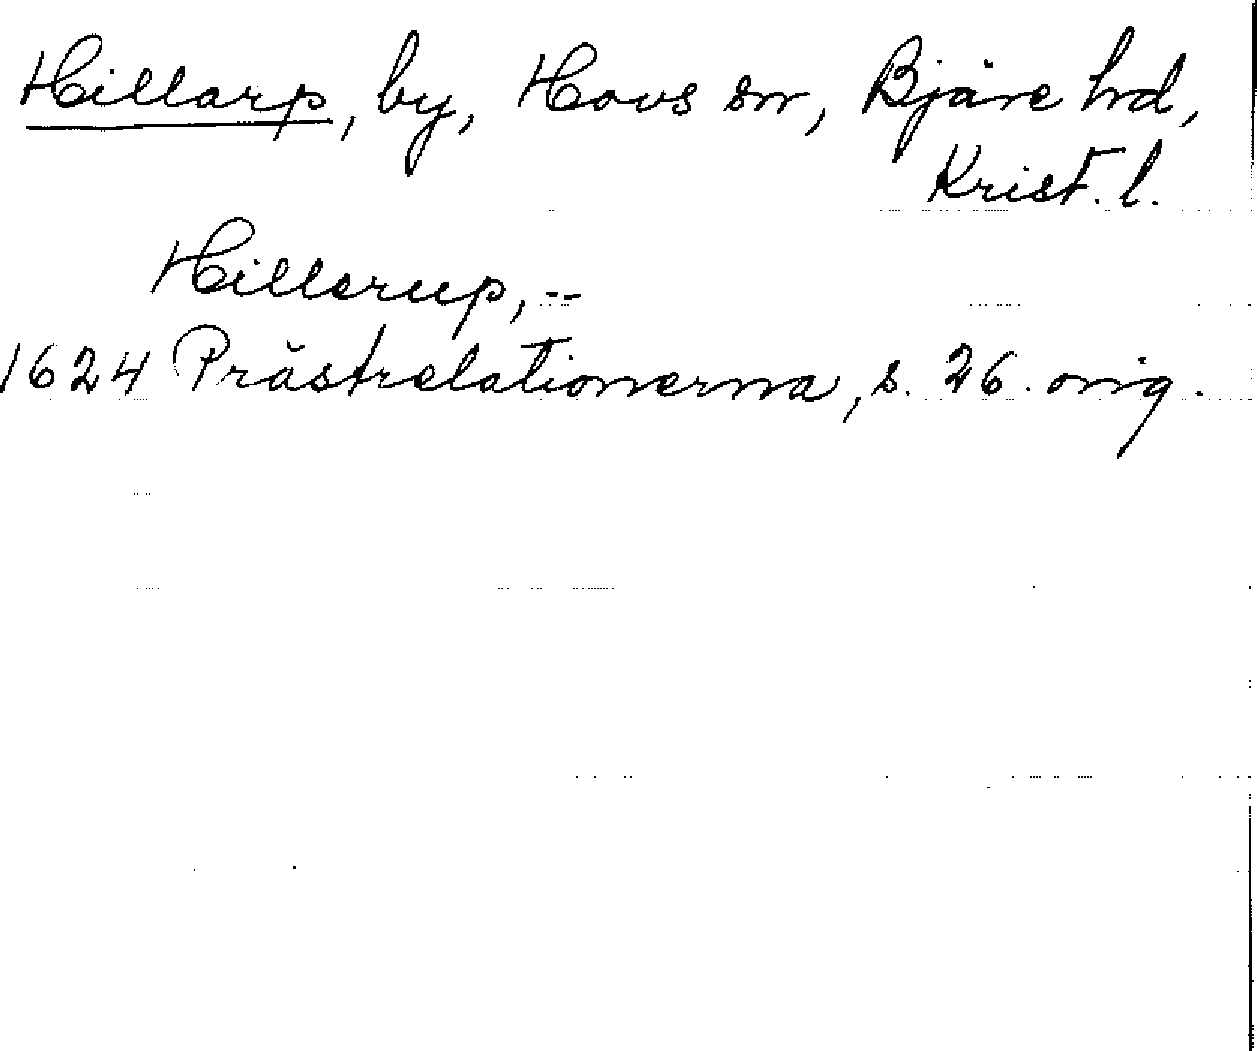 Hillarp, by, Hovs sn, Bjäre hd,
Krist. l.
Hillerup, --
1624 Prästrelationerna, s. 26. orig.